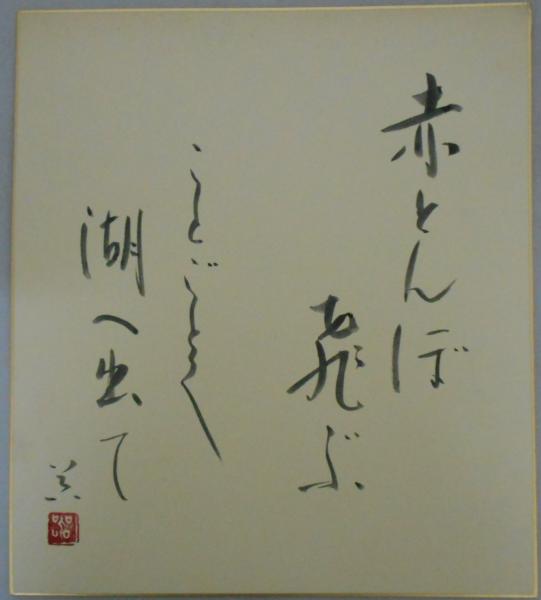 赤とんぼ
飛ぶ
ことごとく
湖へ出て